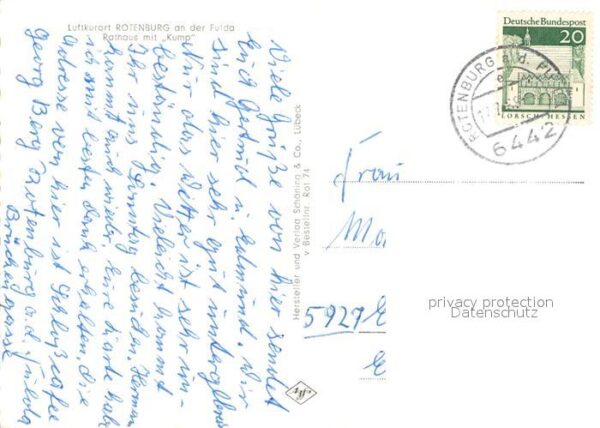 Luftkurort ROTENBURG an der Fulda
Rathaus mit „Kump"
Viele Grüße von hier sendet
Euch Gertrud u. Wir
sind hier sehr gut
Nur das Wetter ist sehr un-
beständig. Vielleicht kommt
Ihr uns Sonntag besuchen. Hermann
kommt auch wieder. Eure Karte habe
ich mit besten Dank erhalten, die
Adresse von hier ist Schloßcafee
Georg Berg Rotenburg a.d. Fulda
Brückengasse
Hersteller und Verlag Schöning & Co., Lübeck
Bestellnr. Rot 74
Agfa
Deutsche Bundespost
20
LORSCH/HESSEN
ROTENBURG a.d. F
6442
Frau
Ma
5927 E
E
privacy protection
Datenschutz